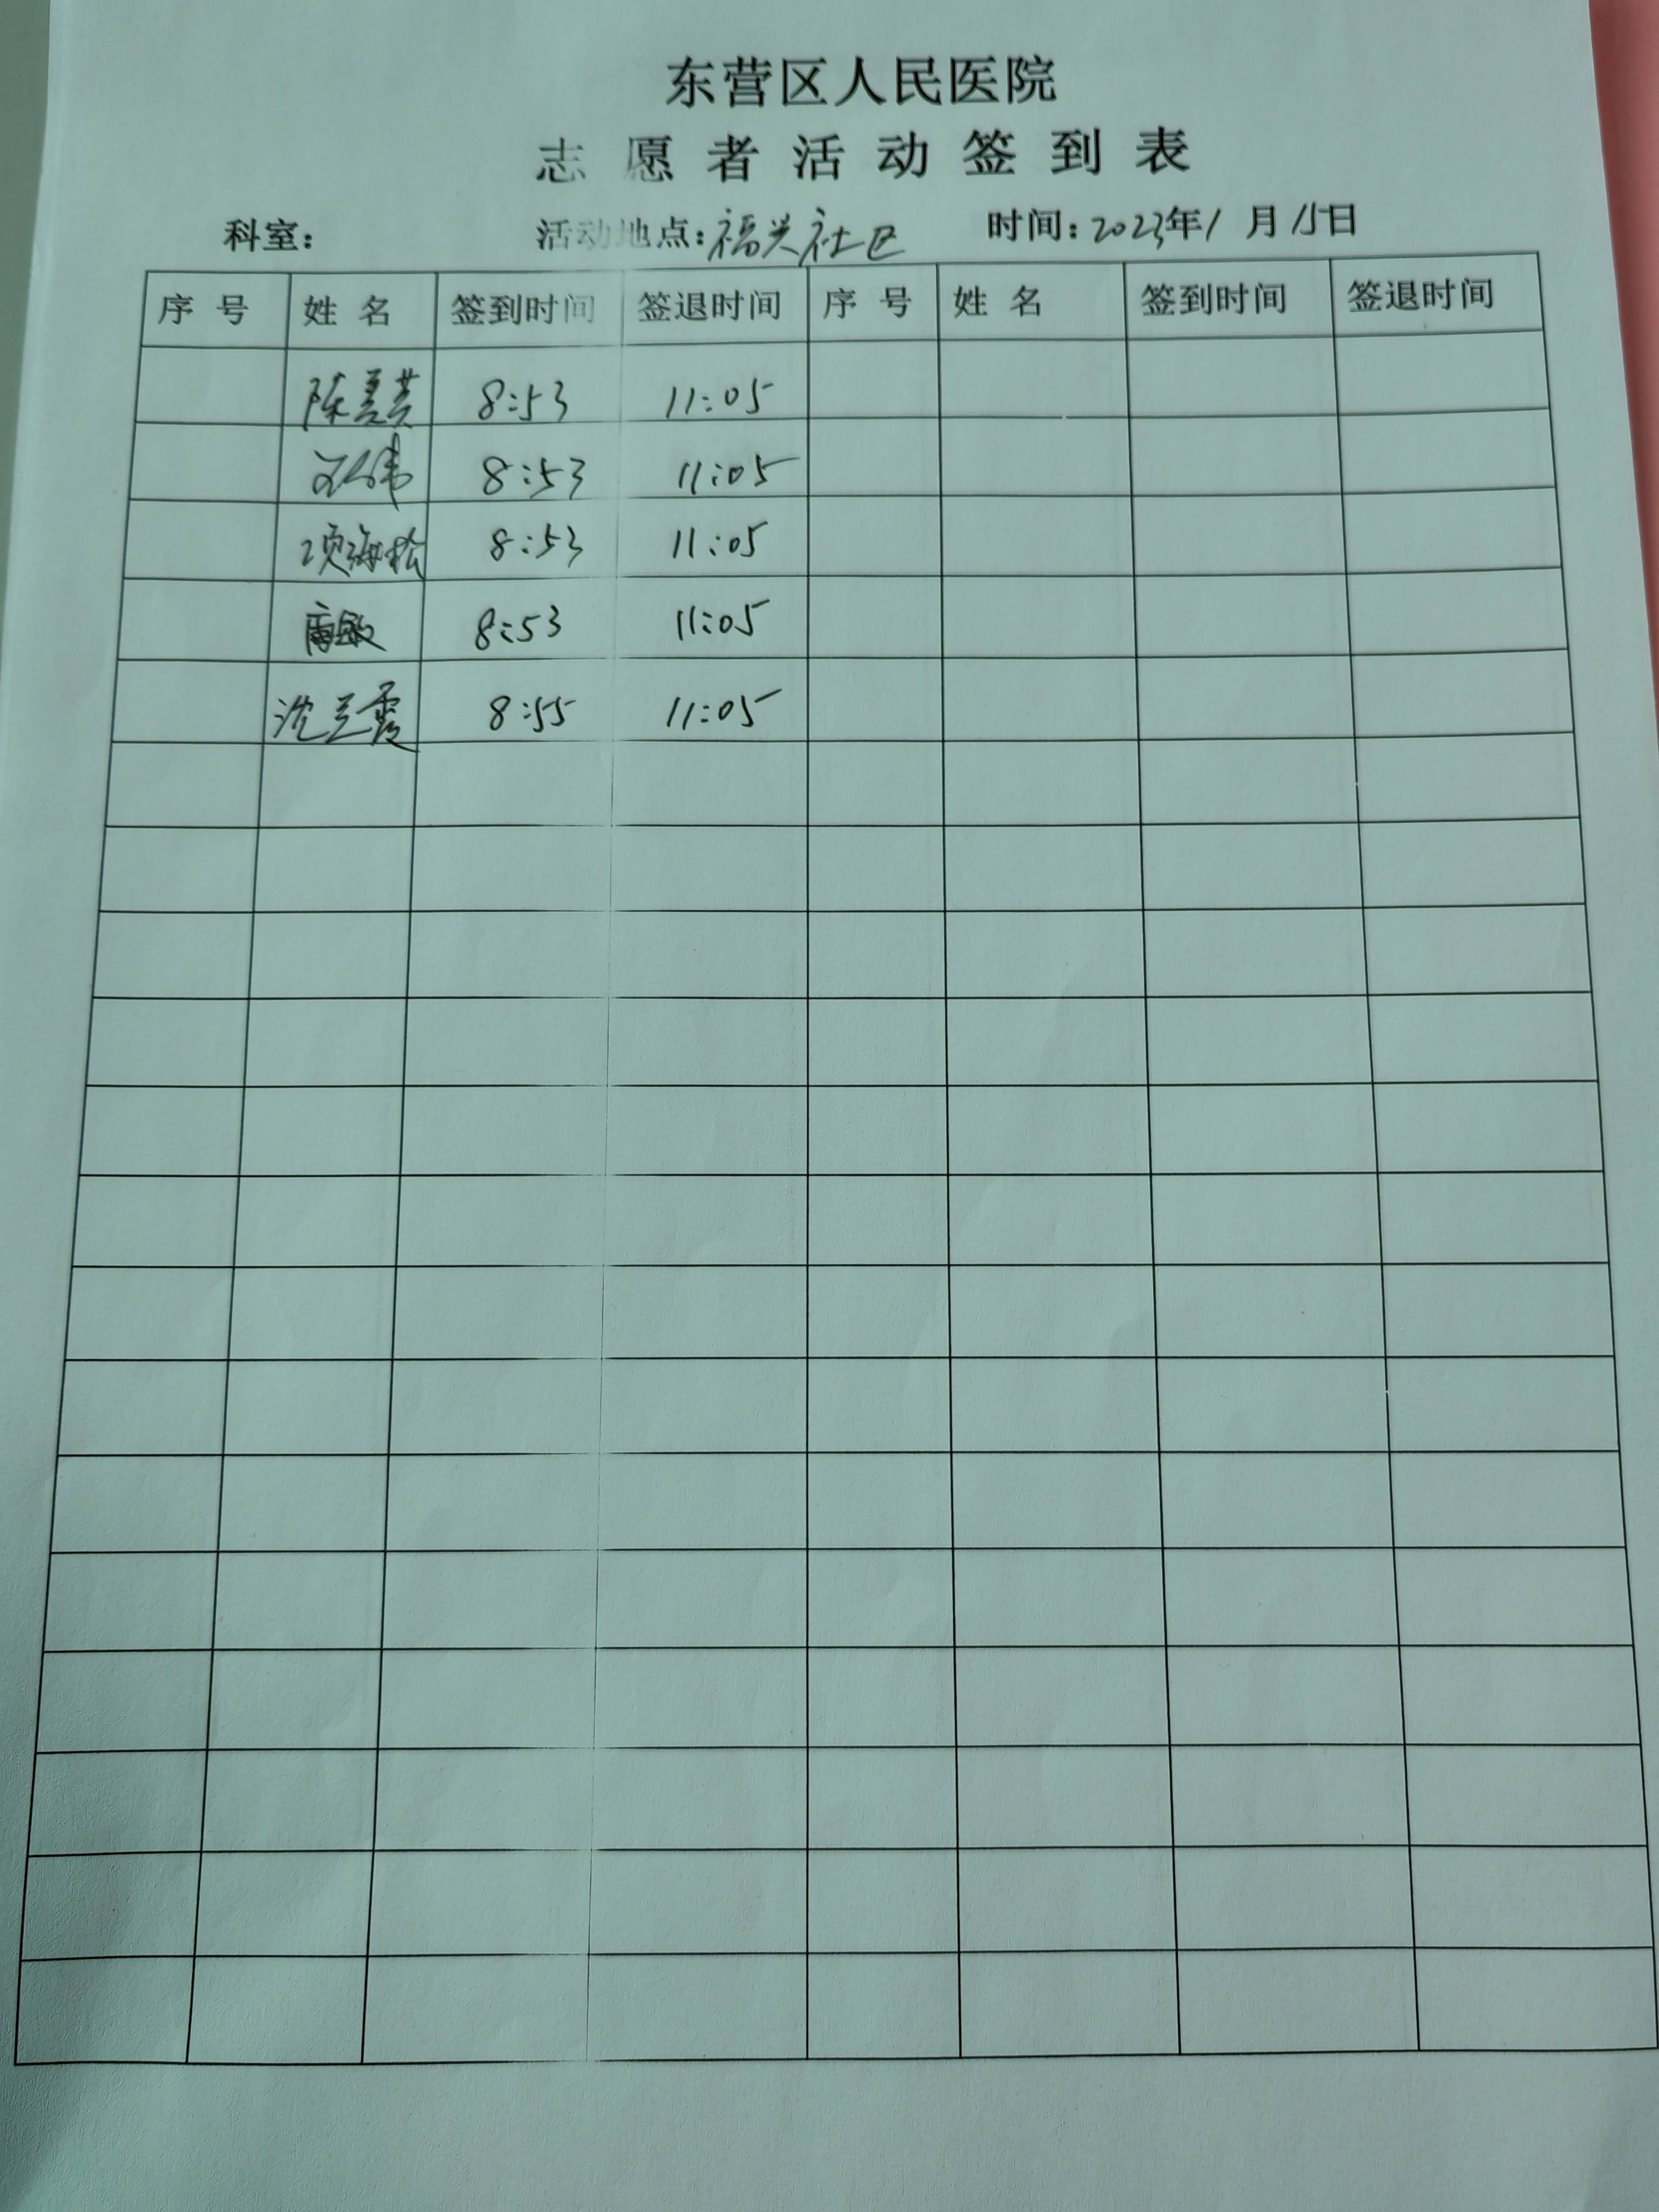 东营区人民医院
志愿者活动签到表
科室： 活动地点：福兴社区 时间：2023年1月15日
序号 姓名 签到时间 签退时间 序号 姓名 签到时间 签退时间
陈 8:53 11:05
8:53 11:05
项海松 8:53 11:05
敏 8:53 11:05
沈兰霞 8:55 11:05